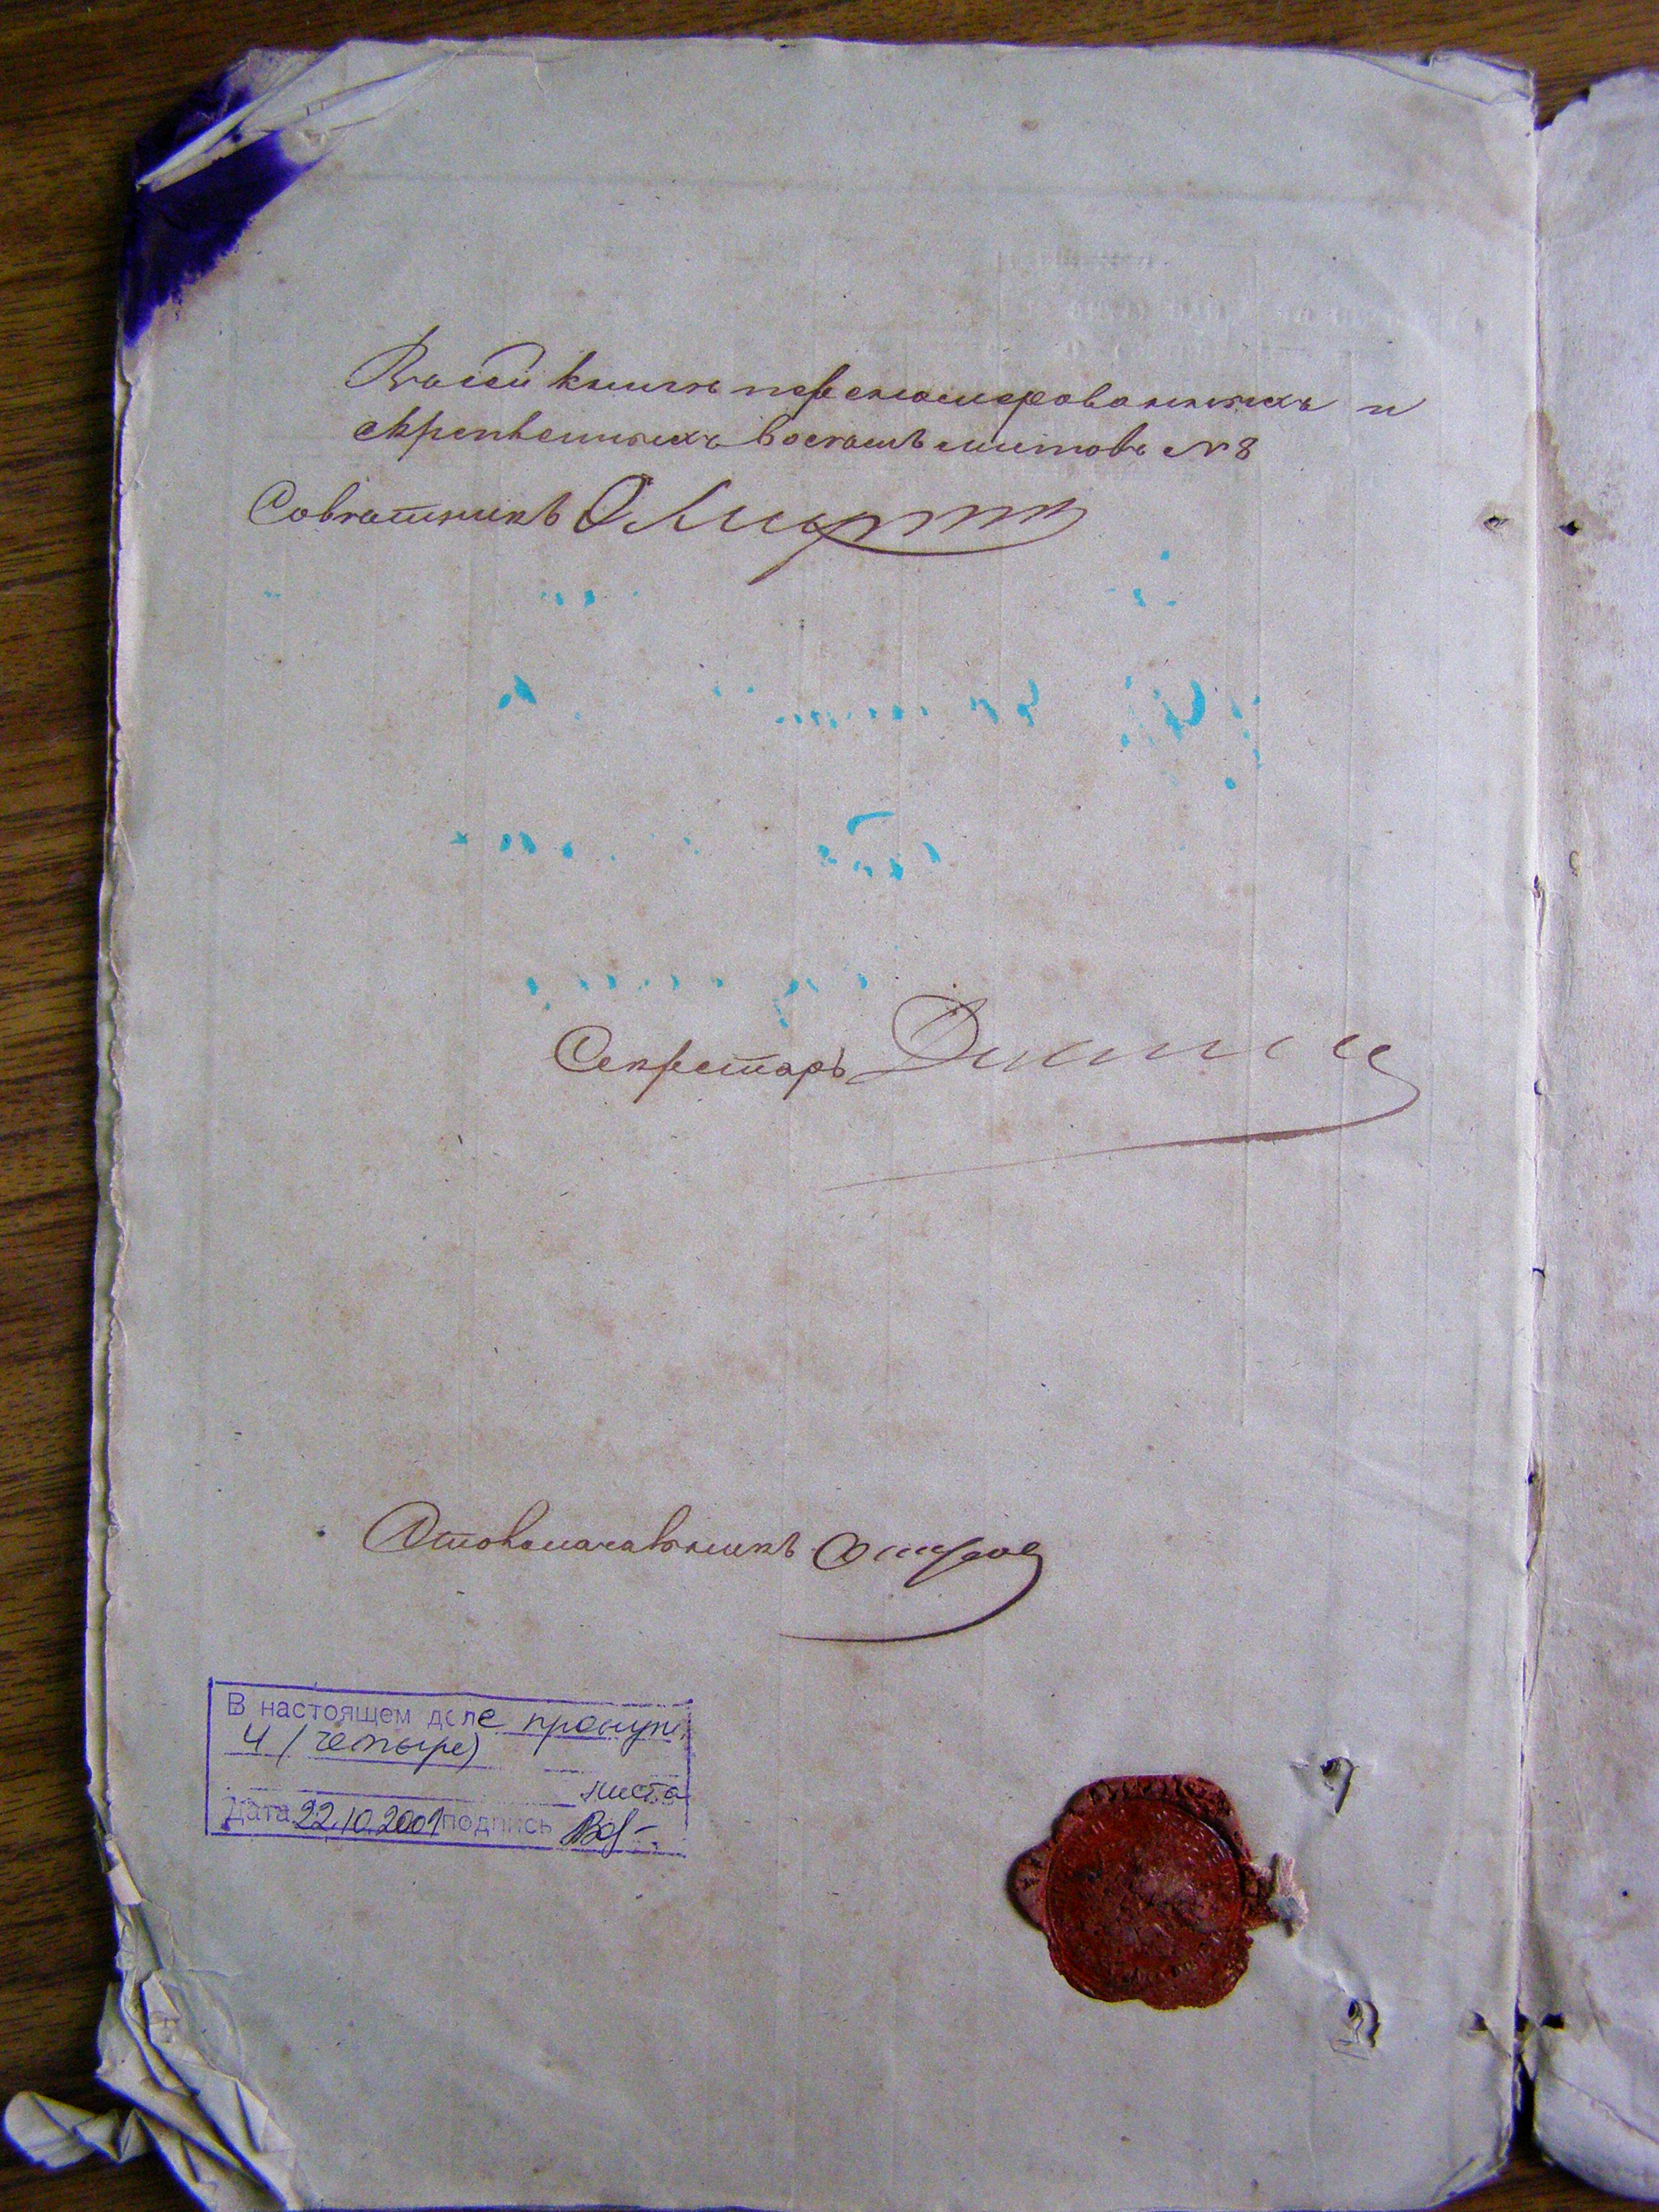 Въ сей книгѣ перенумерованныхъ и
скрѣпленныхъ восемь листовъ № 8
Совѣтникъ
Секретарь
Столоначальникъ
В настоящем деле пронум.
4 (четыре)
листа
Дата 22.10.2001 подпись